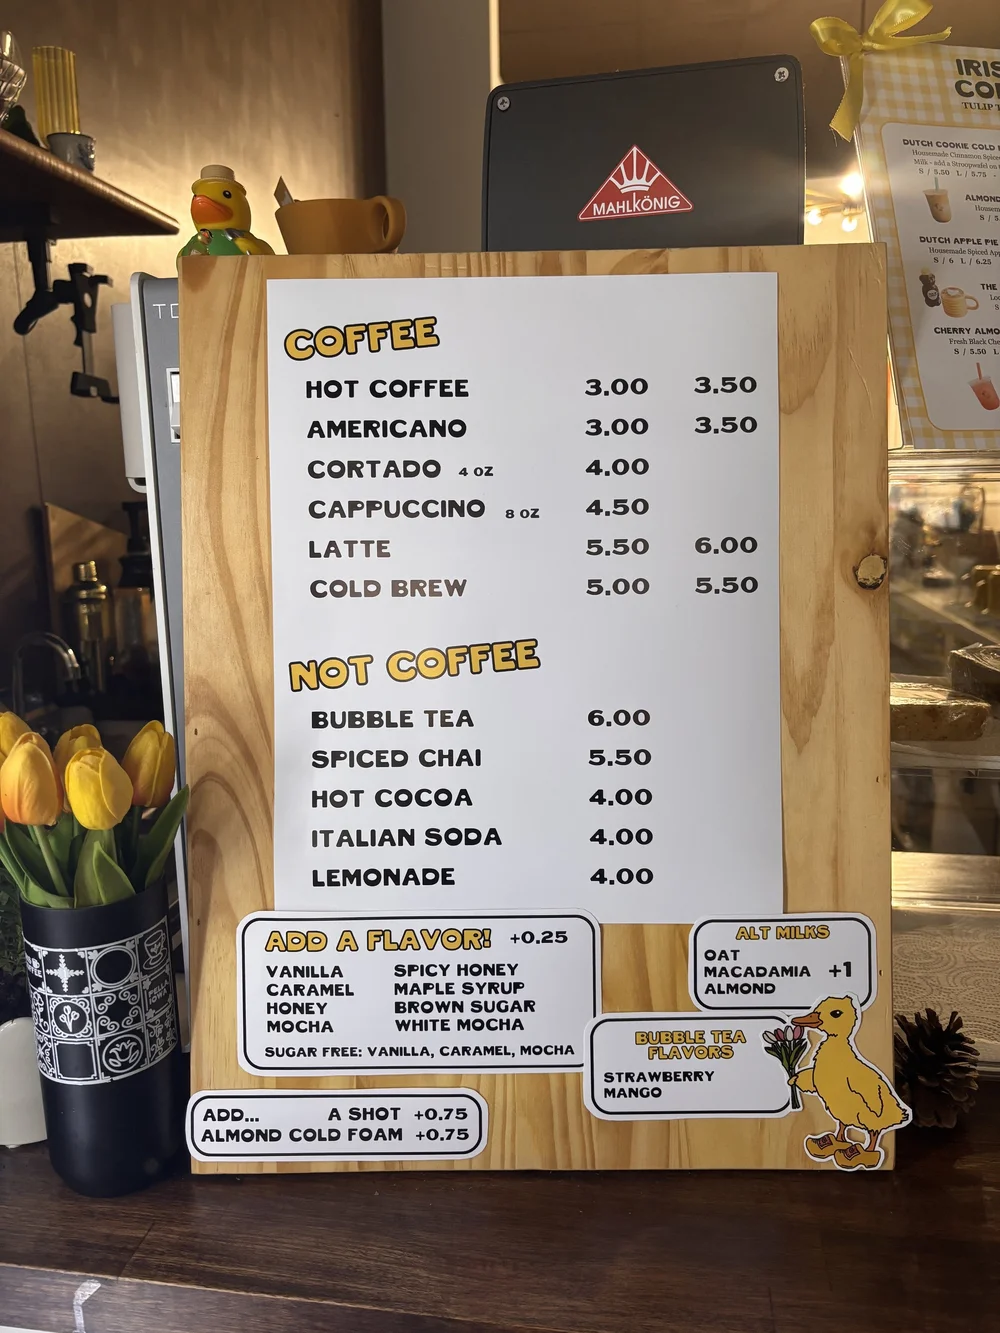 MAHLKÖNIG
COFFEE
HOT COFFEE 3.00 3.50
AMERICANO 3.00 3.50
CORTADO 4 OZ 4.00
CAPPUCCINO 8 OZ 4.50
LATTE 5.50 6.00
COLD BREW 5.00 5.50
NOT COFFEE
BUBBLE TEA 6.00
SPICED CHAI 5.50
HOT COCOA 4.00
ITALIAN SODA 4.00
LEMONADE 4.00
ADD A FLAVOR! +0.25
VANILLA SPICY HONEY
CARAMEL MAPLE SYRUP
HONEY BROWN SUGAR
MOCHA WHITE MOCHA
SUGAR FREE: VANILLA, CARAMEL, MOCHA
ALT MILKS
OAT
MACADAMIA +1
ALMOND
BUBBLE TEA
FLAVORS
STRAWBERRY
MANGO
ADD... A SHOT +0.75
ALMOND COLD FOAM +0.75
DUTCH COOKIE COLD
Housemade Cinnamon
Milk - add a Stroopwafel on
S / 5.50 L / 5.75
ALMON
S / 5
DUTCH APPLE PIE
Housemade Spiced
S / 6 L / 6.25
THE
CHERRY ALMO
Fresh Black Che
S / 5.50 L
PELLA
IOWA